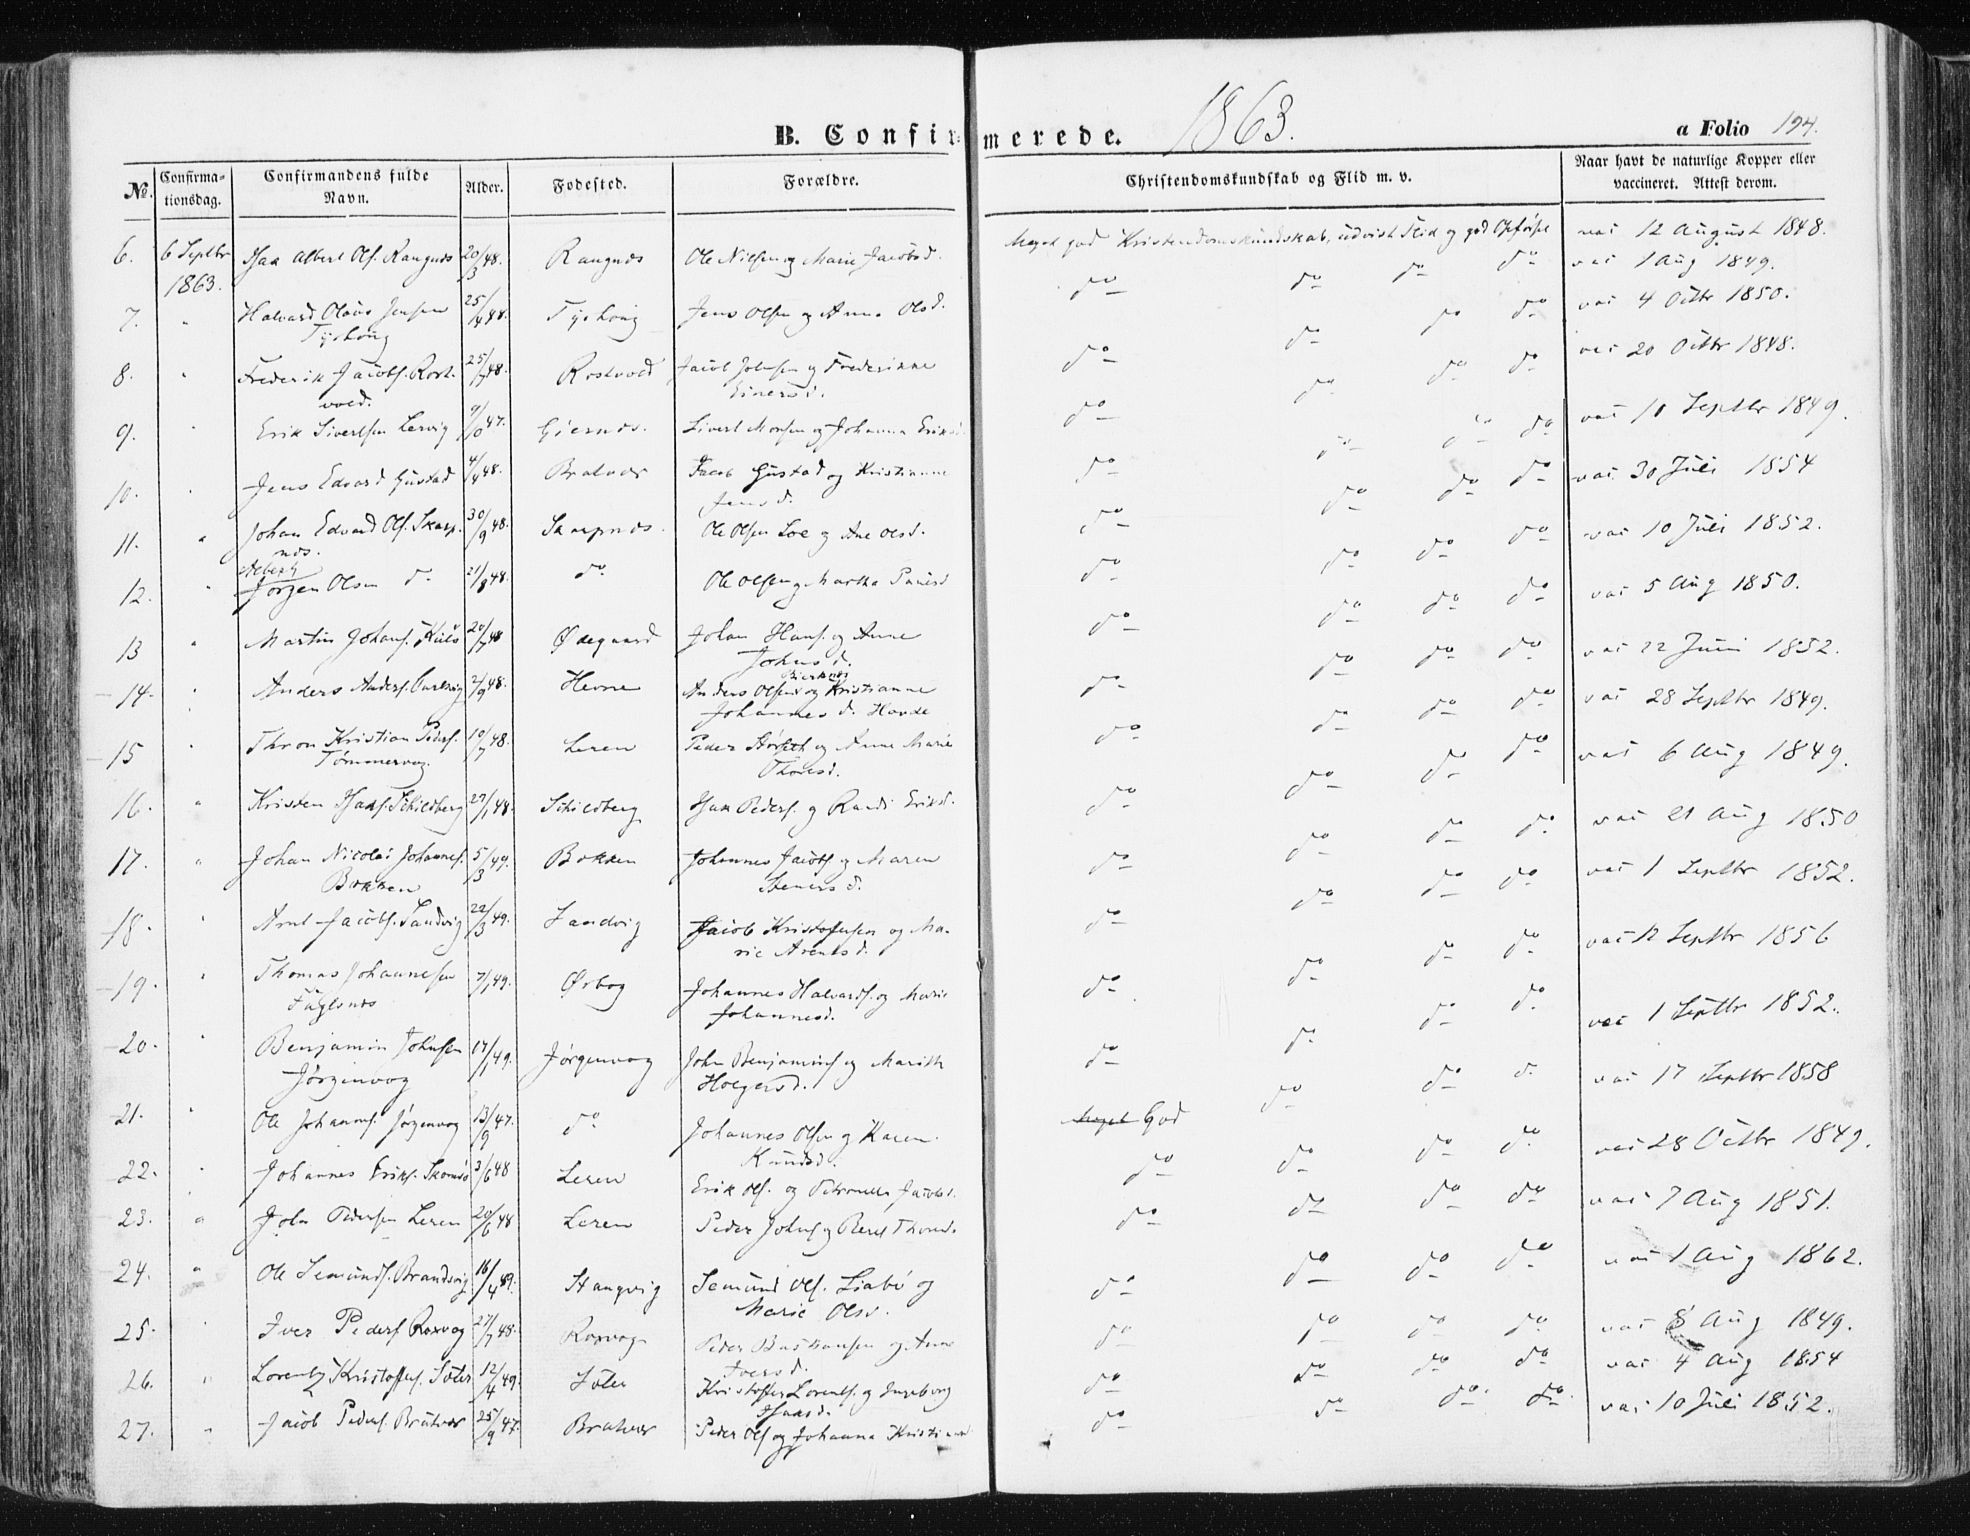 B. Confirmerede. 1863. a Folio 194.
No. Confirmationsdag. Confirmandens fulde Navn. Alder. Fødested. Forældre. Christendomskundskab og Flid m. v. Naar havt de naturlige Kopper eller vaccineret. Attest derom.
6. 6 Septbr 1863. Isak Albert Ols. Rangnes 20/3 48. Rangnes Ole Nilsen og Marie Jacobsd. Meget god Kristendomskundskab, udvist Flid og god Opførsel vac 12 August 1848.
7. " Halvard Olaus Jensen Tyshoug 25/4 48. Tyshoug Jens Olsen og Anne Olsd. do do do do vac 1 Aug 1849.
8. " Frederik Jacobs. Rostvold. 25/7 48. Rostvold Jacob Johnsen og Frederikke Einersd. do do do do vac 4 Octbr 1850.
9. " Erik Sivertsen Lervig 9/10 47. Giernes. Sivert Monsen og Johanna Eriksd. do do do do vac 20 Octbr 1848.
10. " Jens Edvard Gustad 4/4 48. Bratvær Jacob Gustad og Kristianne Jensd. do do do do vac 11 Septbr 1849.
11. " Johan Edvard Ols. Skarpnes. 30/9 48. Skarpnes. Ole Olsen Loe og Ane Olsd. do do do do vac 30 Juli 1854
12. " Albert Jørgen Olsen do 21/8 48. do Ole Olsen og Martha Paulsd do do do do vac 10 Juli 1852.
13 " Martin Johans. Kulø 20/7 48 Ødegaard Johan Hans. og Anne Johnsd. do do do do vac 5 Aug 1850.
14. " Anders Anders. 2/9 48. Hevne Anders Olsen og Kristianne Johannesd. Hovde do do do do vac 22 Juni 1852.
15 " Thron Kristian Peders. Tømmervog. 10/7 48. Leren Peder og Anne Marie Thoresd. do do do do vac 28 Septbr 1849.
16. " Kristen Isaks. Schildberg 27/1 48. Schildberg Isak Peders. og Randi Eriksd. do do do do vac 6 Aug 1849.
17. " Johan Nicolai Johannes. Bakken 5/3 49. Bakken Johannes Jacobs. og Maren Stenersd. do do do do vac 21 Aug 1850
18. " Arnt Jacobs. Sandvig 22/3 49. Sandvig Jacob Kristofersen og Marie Arentsd. do do do do vac 1 Septbr 1852.
19. " Thomas Johannesen Fuglsnes 7/1 49. Ørbog Johannes Halvards. og Marie Johannesd. do do do do vac 12 Septbr 1856
20. " Benjamin Johnsen Jørgenvog 17/1 49. Jørgenvog John Benjamins. og Marith Holgersd. do do do do vac 1 Septbr 1852.
21. " Ole Johanns. Jørgenvog 13/9 47. do Johannes Olsen og Karen Knudsd. Meget God do do do vac 17 Septbr 1858
22. " Johannes Eriks. Skomsø 3/6 48 Leren Erik Ols. og Petronelle Jacobsd. do do do do vac 28 Octbr 1849.
23. " John Pedersen Leren 20/6 48 Leren Peder Johns. og Beret Thomsd. do do do do vac 7 Aug 1851.
24. " Ole Semunds. Brandsvig 16/4 49. Stangvig Semund Ols. Liabø og Marie Olsd. do do do do vac 1 Aug 1862.
25. " Iver Peders. Roxvog 27/7 48. Roxvog Peder Bastiansen og Anne Iversd. do do do do vac 8 Aug 1849.
26. " Lorentz Kristoffers. Soter 12/4 49. Soter Kristoffer Lorents. og Ingeborg Isaksd. do do do do vac 4 Aug 1854
27. " Jacob Peders. Bratvær 25/9 47. Bratvær Peder Ols. og Johanna do do do do vac 10 Juli 1852.